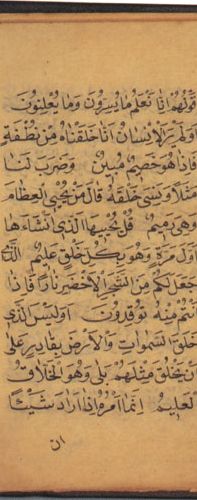 قولهم انا نعلم ما يسرون وما يعلنون
اولم ير الانسان انا خلقناه من نطفة
فاذا هو خصيم مبين وضرب لنا
مثلا ونسى خلقه قال من يحيى العظام
وهى رميم قل يحييها الذى انشاءها
اول مرة وهو بكل خلق عليم الذى
جعل لكم من الشجر الاخضر نارا فاذا
نتم منه توقدون اوليس الذى
خلق السموات والارض بقادر على
ان يخلق مثلهم بلى وهو الخلاق
لعليم انما امره اذا اراد شيئا
ان